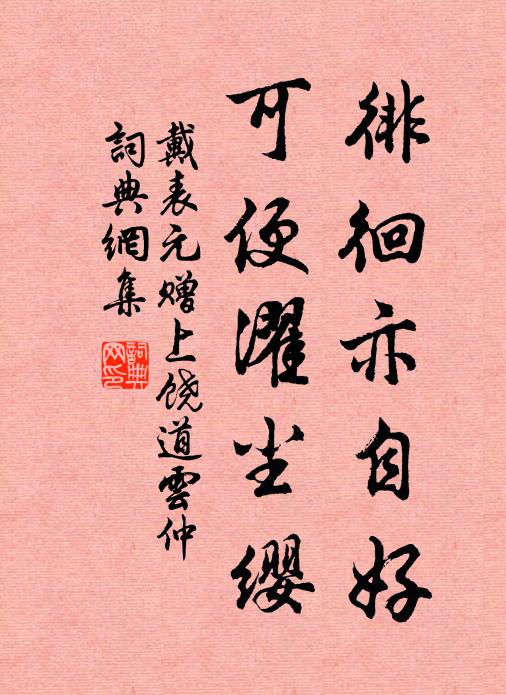 徘徊亦自好
可便濯尘缨
戴表元赠上饶道雲仲
詞典網集
詞典网印